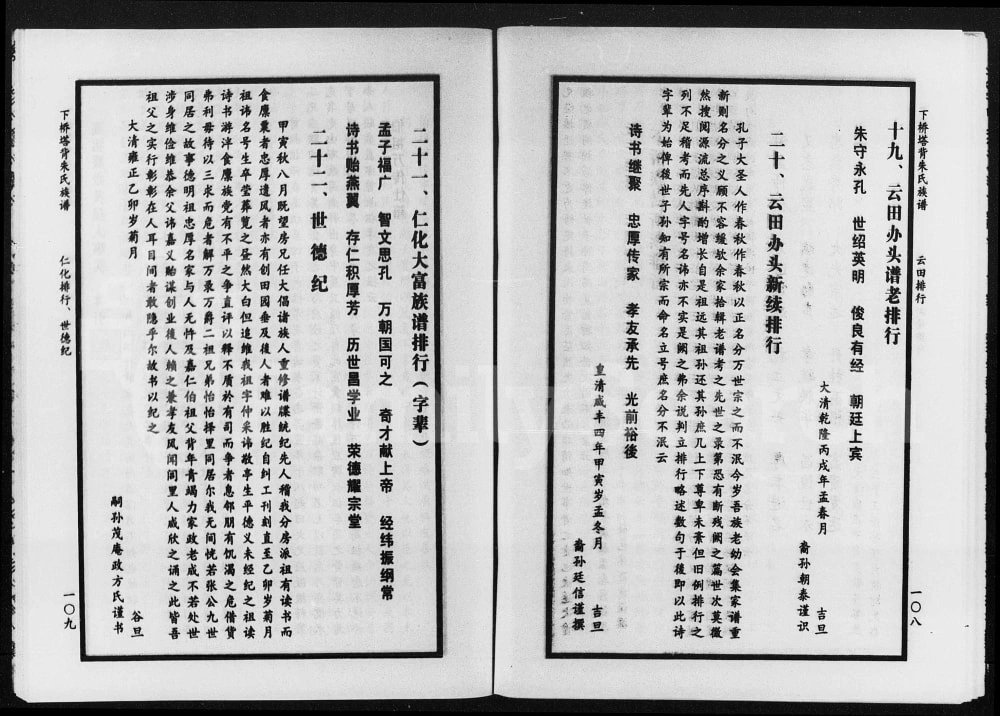 下桥塔背朱氏族谱
云田排行
一〇八
十九、云田办头谱老排行
朱守永孔 世绍英明 俊良有经 朝廷上宾
大清乾隆丙戌年孟春月 吉旦
裔孙朝泰谨识
二十、云田办头新续排行
孔子大圣人作春秋作春秋以正名分万世宗之而不泯今岁吾族老幼会集家谱重
新则名分之义顾不容缓欤余家拾辑老谱考之先世之录第恐有断残阙之篇世次莫微
然搜阅源流总序斟酌增长自是祖远其祖孙还其孙庶几上下尊卑未紊但旧例排行之
列不足稽考而先人字号名讳亦不实是阙之弗余说判立排行略述数句于後即以此诗
字辈为始俾後世子孙知有所宗而命名立号庶名分不泯云
诗书继聚 忠厚传家 孝友承先 光前裕後
皇清咸丰四年甲寅岁孟冬月 吉旦
裔孙廷信谨撰
二十一、仁化大富族谱排行(字辈)
孟子福广 智文思孔 万朝国可之 奇才献上帝 经纬振纲常
诗书贻燕翼 存仁积厚芳 历世昌学业 荣德耀宗堂
二十二、世德纪
甲寅秋八月既望房兄任大倡诸族人重修谱牒统纪先人稽我分房派祖有读书而
食廪粟者忠厚遗风者亦有创田园垂及後人者难以胜纪自纠工刊刻直至乙卯岁菊月
祖讳名号生卒茔葬览之昼然大白但追维我祖字仲采讳敬亭生平德义未经纪之祖读
诗书游泮食廪族党有不平之争直评以释不质於有司而争者息邻朋有饥渴之危借贷
弗利毋待以三求而危者解万录万爵二祖兄弟怡怡择里同居尔我无间恍若张公九世
同居之故事德明祖忠厚名家与人无忤及嘉仁伯祖父背年青竭力家政老成不若处世
涉身维俭维恭余父讳嘉义贻谋创业後人赖之兼孝友风闻闾里人咸欣之诵之此皆吾
祖父之实行彰彰在人耳目间者敢隐乎尔故书以纪之
大清雍正乙卯岁菊月 谷旦
嗣孙茂庵政方氏谨书
下桥塔背朱氏族谱
仁化排行、世德纪
一〇九